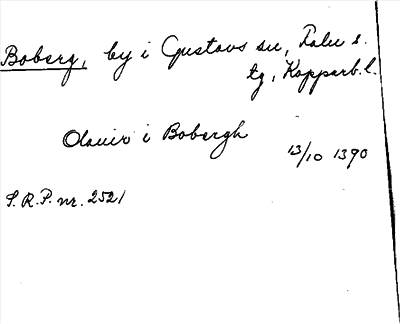 Boberg, by i Gustavs sn, Falu s.
tg, Kopparb. l.
Olauir i Bobergh
13/10 1390
S.R.P. nr. 2521